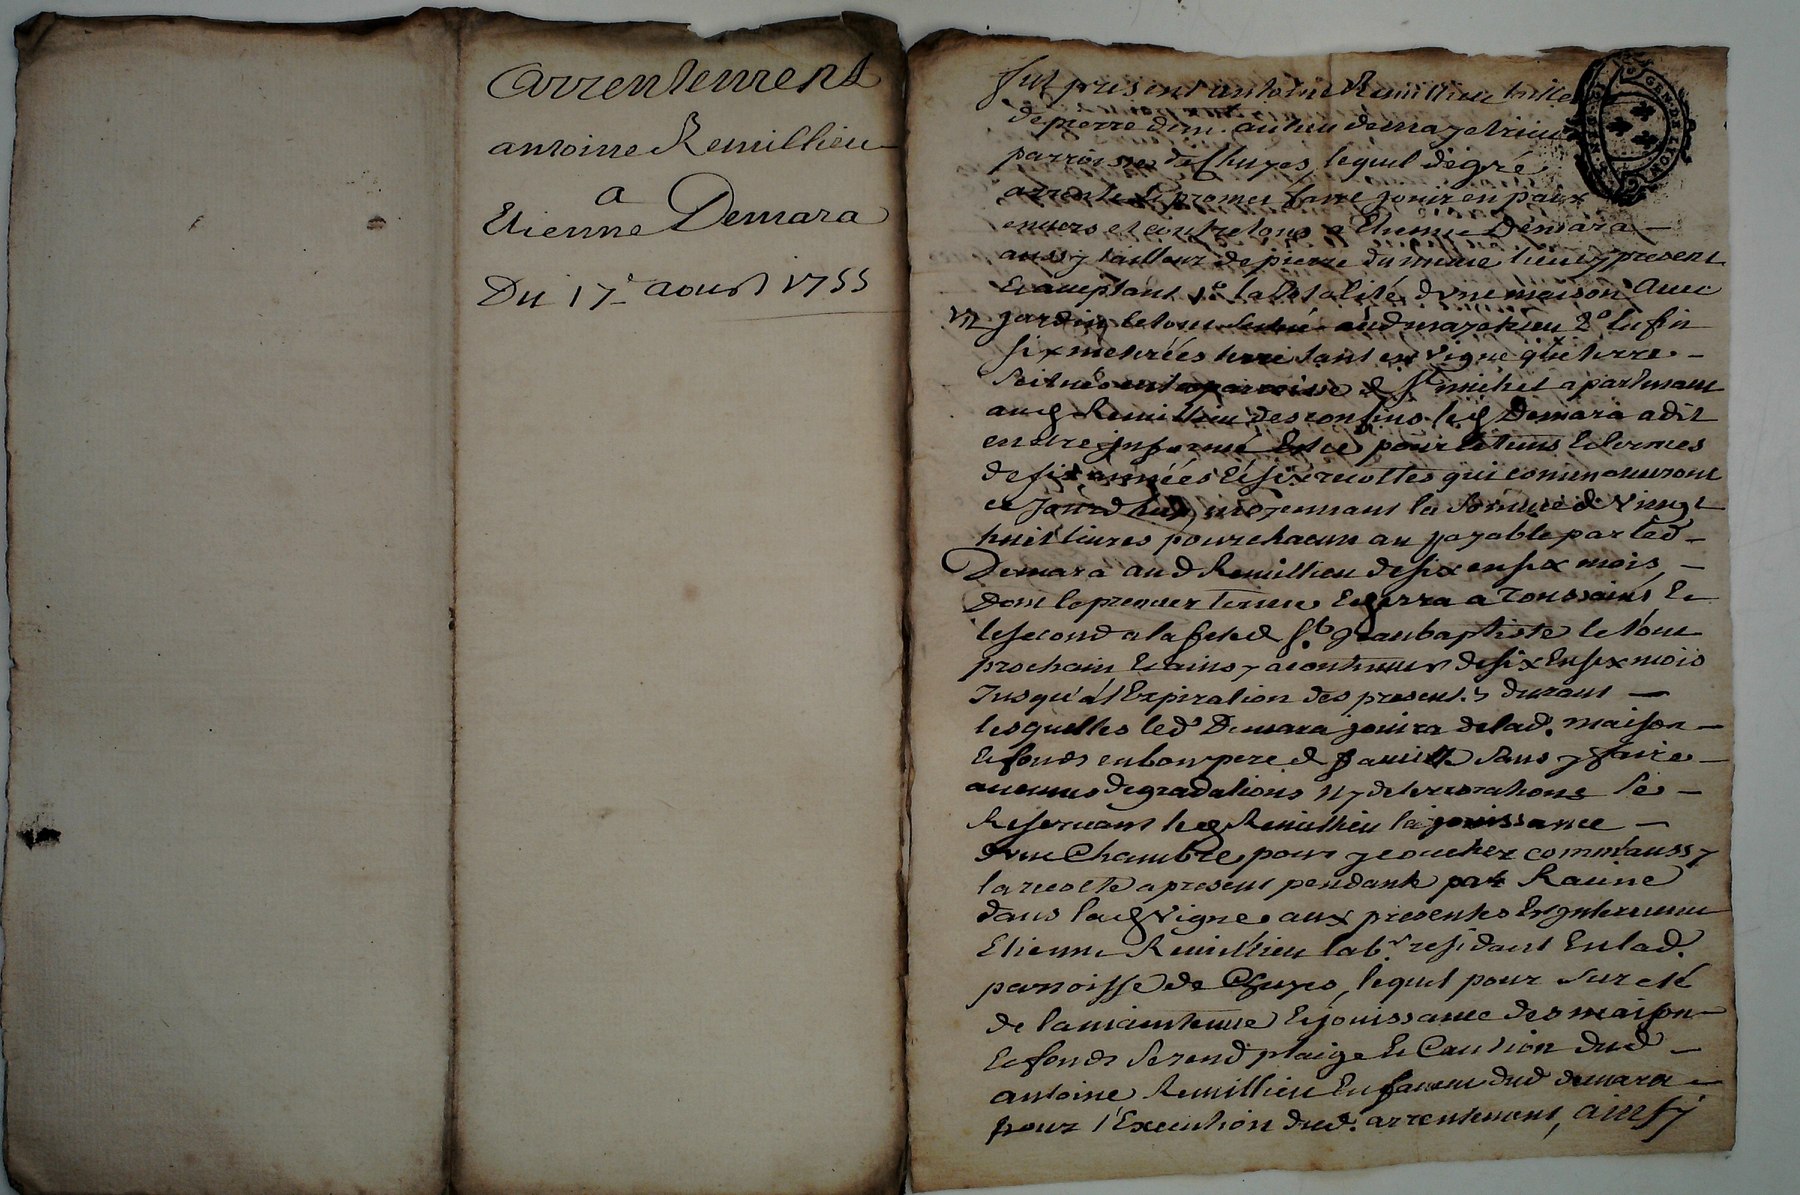 arrentement
antoine Remillieu
a
Etienne Demara
Du 17e aoust 1755
GEN. DE LION
fut present antoine Remillieu taille
de pierre dem. au lieu de mazelvieu
parroisse de Chuyes, lequel de gré
arrente & promet faire jouir en paix
envers et contre tous a Etienne Demara
aussy tailleur de pierre du meme lieu y present
& acceptant 1º la totalité d'vne maison avec
jardin le tout aud mazelvieu 2º enfin
six metrées terre tant en vigne que terre
scitués en la parroisse de St michel apartenant
aud Remillieu des confins led Demara a dit
en etre informé & ce pour le tems & termes
de six années & six recottes qui commenceront
ce jourd'huy, moyennant la somme de vingt
huit livres pour chacun an payable par led
Demara aud Remillieu de six en six mois
Dont le premier terme echerra a Toussaints &
le second a la fete de St Jean baptiste le tout
prochain & ainsy a continuer de six en six mois
Jusqu'à l'Expiration des presentes durant
lesquelles led Demara jouira de lad. maison
& fonds en bon pere de famille sans y faire
aucunes degradations ny deterriorations se
Reservant led Remillieu la jouissance
d'vne Chambre pour y coucher comm'aussy
la recolte a present pendante par Racine
dans lad vigne aux presentes Est intervenu
Etienne Remillieu labr residant En lad.
parroisse de Chuyes, lequel pour sureté
de la maintenue & jouissance des maison
& fonds se rend plaige & Caution dud
antoine Remillieu En faveur dud demara
pour l'Execution dud. arrentement, ainsy